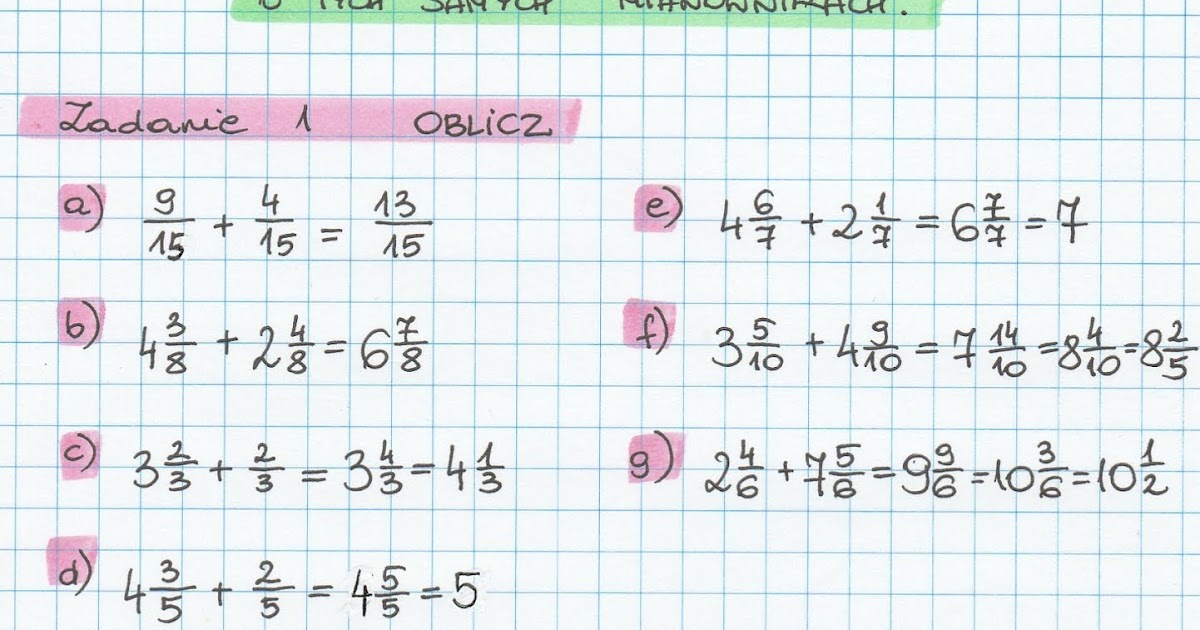 O TYCH SAMYCH MIANOWNIKACH.
Zadanie 1 OBLICZ
a) 9/15 + 4/15 = 13/15
b) 4 3/8 + 2 4/8 = 6 7/8
c) 3 2/3 + 2/3 = 3 4/3 = 4 1/3
d) 4 3/5 + 2/5 = 4 5/5 = 5
e) 4 6/7 + 2 1/7 = 6 7/7 = 7
f) 3 5/10 + 4 9/10 = 7 14/10 = 8 4/10 = 8 2/5
g) 2 4/6 + 7 5/6 = 9 9/6 = 10 3/6 = 10 1/2